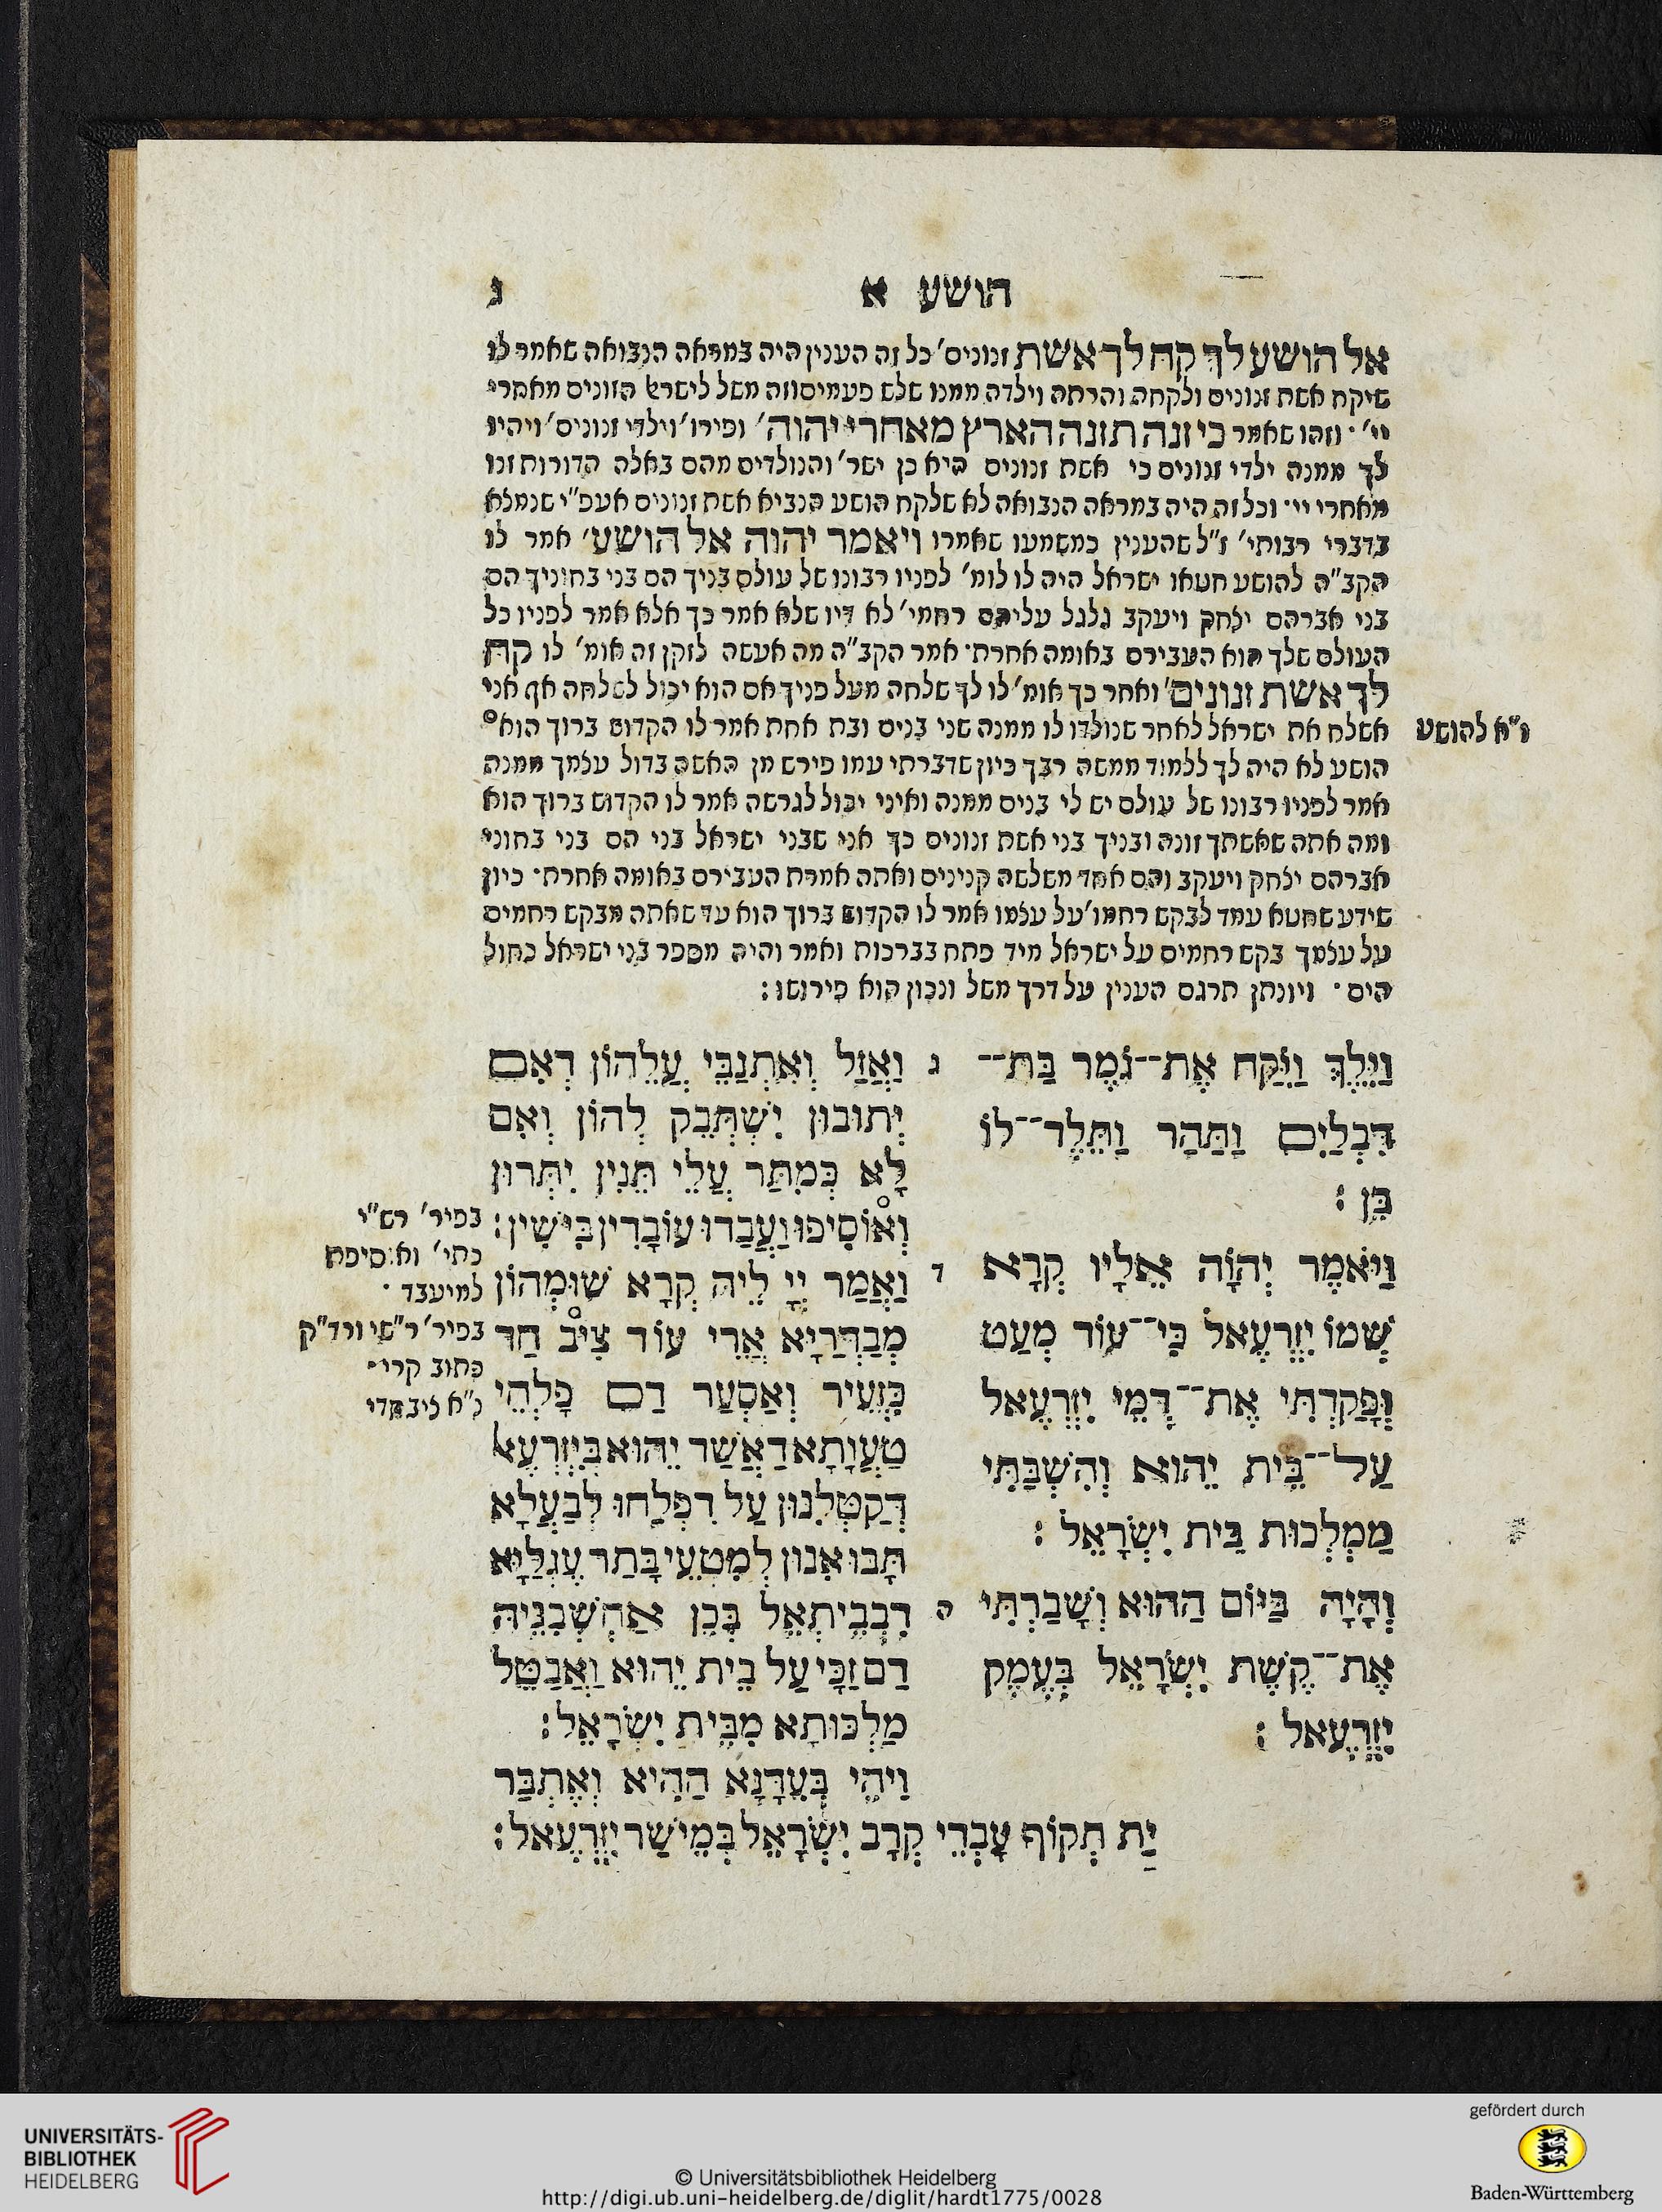 הושע א
ג
אל הושע לך קח לך אשת זנונים׳ כל זה הענין היה במראה הנבואה שאמר לו
שיקח אשת זנונים ולקחה והרתה וילדה ממנו שלש פעמים וזה משל לישרא׳ הזונים מאחרי
יי׳ · וזהו שאמר כי זנה תזנה הארץ מאחרי יהוה׳ ופירו׳ וילדי זנונים׳ ויהיו
לך ממנה ילדי זנונים כי אשת זנונים היא כן ישר׳ והנולדים מהם באלה הדורות זנו
מאחרי יי · וכל זה היה במראה הנבואה לא שלקח הושע הנביא אשת זנונים אעפ״י שנמצא
בדברי רבותי׳ ז״ל שהענין כמשמעו שאמרו ויאמר יהוה אל הושע׳ אמר לו
הקב״ה להושע חטאו ישראל היה לו לומ׳ לפניו רבונו של עולם בניך הם בני בחוניך הם
בני אברהם יצחק ויעקב גלגל עליהם רחמי׳ לא דיו שלא אמר כך אלא אמר לפניו כל
העולם שלך הוא העבירם באומה אחרת · אמר הקב״ה מה אעשה לזקן זה אומ׳ לו קח
לך אשת זנונים׳ ואחר כך אומ׳ לו לך שלחה מעל פניך אם הוא יכול לשלחה אף אני
אשלח את ישראל לאחר שנולדו לו ממנה שני בנים ובת אחת אמר לו הקדוש ברוך הוא°
נ״א להושע
הושע לא היה לך ללמוד ממשה רבך כיון שדברתי עמו פירש מן האשה בדול עצמך ממנה
אמר לפניו רבונו של עולם יש לי בנים ממנה ואיני יכול לגרשה אמר לו הקדוש ברוך הוא
ומה אתה שאשתך זונה ובניך בני אשת זנונים כך אני שבני ישראל בני הם בני בחוני
אברהם יצחק ויעקב והם אחד משלשה קנינים ואתה אמרת העבירם באומה אחרת · כיון
שידע שחטא עמד לבקש רחמו׳ על עצמו אמר לו הקדוש ברוך הוא עד שאתה מבקש רחמים
על עצמך בקש רחמים על ישראל מיד פתח בברכות ואמר והיה מספר בני ישראל כחול
הים · ויונתן תרגם הענין על דרך משל ונכון הוא פירושו :
וַיֵּלֶךְ וַיִּקַּח אֶת־־גֹּמֶר בַּת־־
דִּבְלָיִם וַתַּהַר וַתֵּלֶד־־לוֹ
בֵּן :
וַיֹּאמֶר יְהוָֹה אֵלָיו קְרָא
שְׁמוֹ יִזְרְעֶאל כִּי־־עוֹד מְעַט
וּפָקַדְתִּי אֶת־־דְּמֵי יִזְרְעֶאל
עַל־־בֵּית יֵהוּא וְהִשְׁבַּתִּי
מַמְלְכוּת בֵּית יִשְׂרָאֵל :
וְהָיָה בַּיּוֹם הַהוּא וְשָׁבַרְתִּי
אֶת־־קֶשֶׁת יִשְׂרָאֵל בְּעֵמֶק
יִזְרְעֶאל :
ג וַאֲזַל וְאִתְנַבֵּי עֲלֵהוֹן דְאִם
יְתוּבוּן יִשְׁתְּבֵק לְהוֹן וְאִם
לָא כְּמִתַּר עֲלֵי תֵּנִין יִתְּרוּן
וְאוֹסִיפוּ וַעֲבַדוּ עוֹבָדִין בִּישִׁין :
ד וַאֲמַר יְיָ לֵיהּ קְרָא שׁוּמְהוֹן
מְבַדְּרַיָּא אֲרֵי עוֹד צִיב חַד
כִּזְעֵיר וְאַסְעַר דַם פָּלְחֵי
טַעֲוָתָא דַאֲשַׁד יֵהוּא בְּיִזְרְעֶאל
דְּקַטְּלִנּוּן עַל דִּפְלַחוּ לְבַעֲלָא
תָּבוּ אִנּוּן לְמִטְעֵי בָּתַר עֶגְלַיָּא
ה דִּבְבֵיתְאֵל בְּכֵן אַחְשְׁבִנֵּיהּ
דַם זַכַּי עַל בֵּית יֵהוּא וַאֲבַטֵּל
מַלְכוּתָא מִבֵּית יִשְׂרָאֵל :
וִיהֵי בְּעִדָּנָא הַהִיא וְאֶתְבַּר
יַת תְּקוֹף עָבְדֵי קְרָב יִשְׂרָאֵל בְּמֵישַׁר יִזְרְעֶאל :
בפיר׳ רש״י
כתי׳ ואוסיפת
למיעבד ·
בפיר׳ ר״שי ורד״ק
כתוב קרי ·
נ״א
UNIVERSITÄTS-
BIBLIOTHEK
HEIDELBERG
© Universitätsbibliothek Heidelberg
http://digi.ub.uni-heidelberg.de/diglit/hardt1775/0028
gefördert durch
Baden-Württemberg